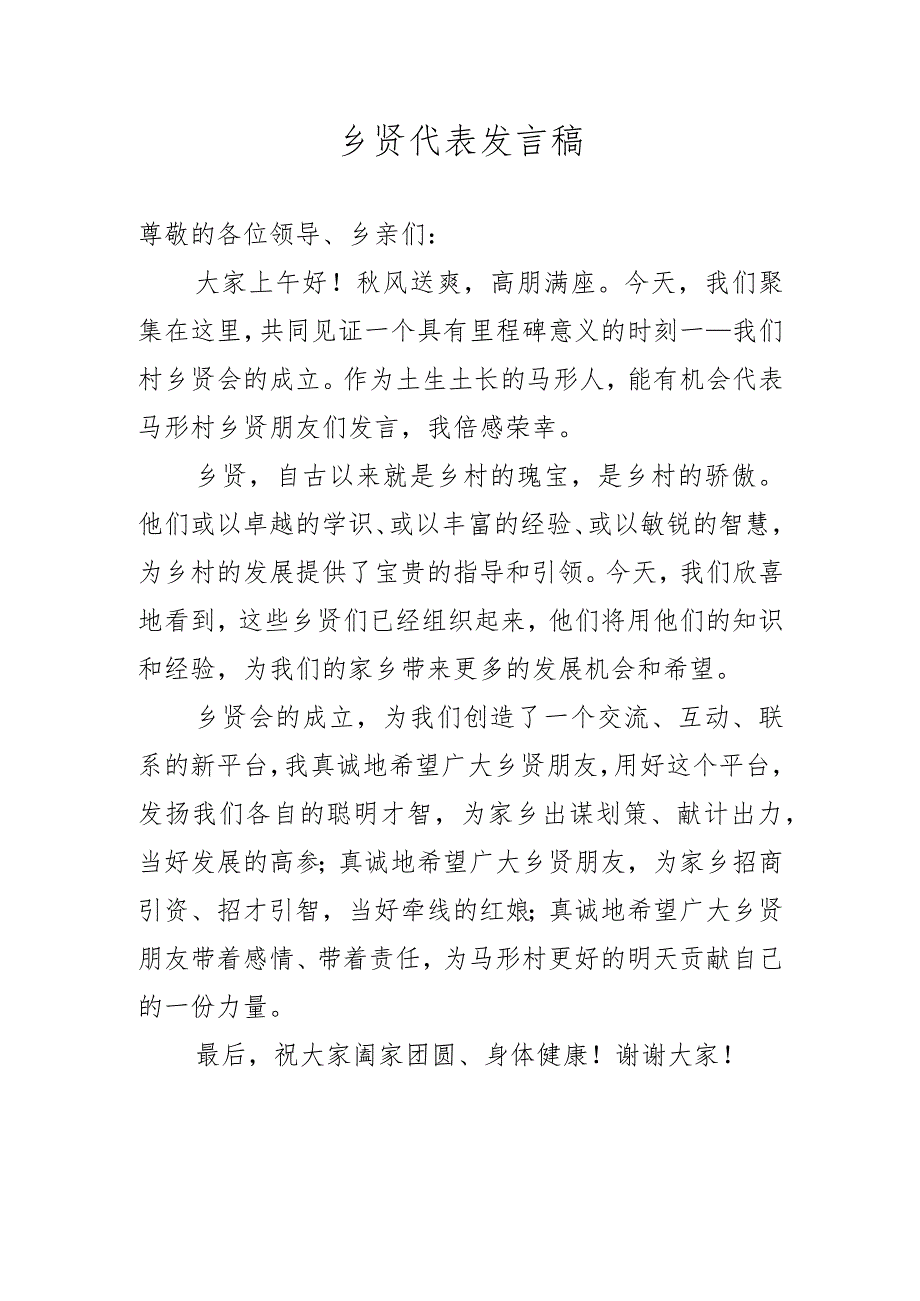 乡贤代表发言稿
尊敬的各位领导、乡亲们：
大家上午好！秋风送爽，高朋满座。今天，我们聚
集在这里，共同见证一个具有里程碑意义的时刻一—我们
村乡贤会的成立。作为土生土长的马形人，能有机会代表
马形村乡贤朋友们发言，我倍感荣幸。
乡贤，自古以来就是乡村的瑰宝，是乡村的骄傲。
他们或以卓越的学识、或以丰富的经验、或以敏锐的智慧，
为乡村的发展提供了宝贵的指导和引领。今天，我们欣喜
地看到，这些乡贤们已经组织起来，他们将用他们的知识
和经验，为我们的家乡带来更多的发展机会和希望。
乡贤会的成立，为我们创造了一个交流、互动、联
系的新平台，我真诚地希望广大乡贤朋友，用好这个平台，
发扬我们各自的聪明才智，为家乡出谋划策、献计出力，
当好发展的高参；真诚地希望广大乡贤朋友，为家乡招商
引资、招才引智，当好牵线的红娘；真诚地希望广大乡贤
朋友带着感情、带着责任，为马形村更好的明天贡献自己
的一份力量。
最后，祝大家阖家团圆、身体健康！谢谢大家！